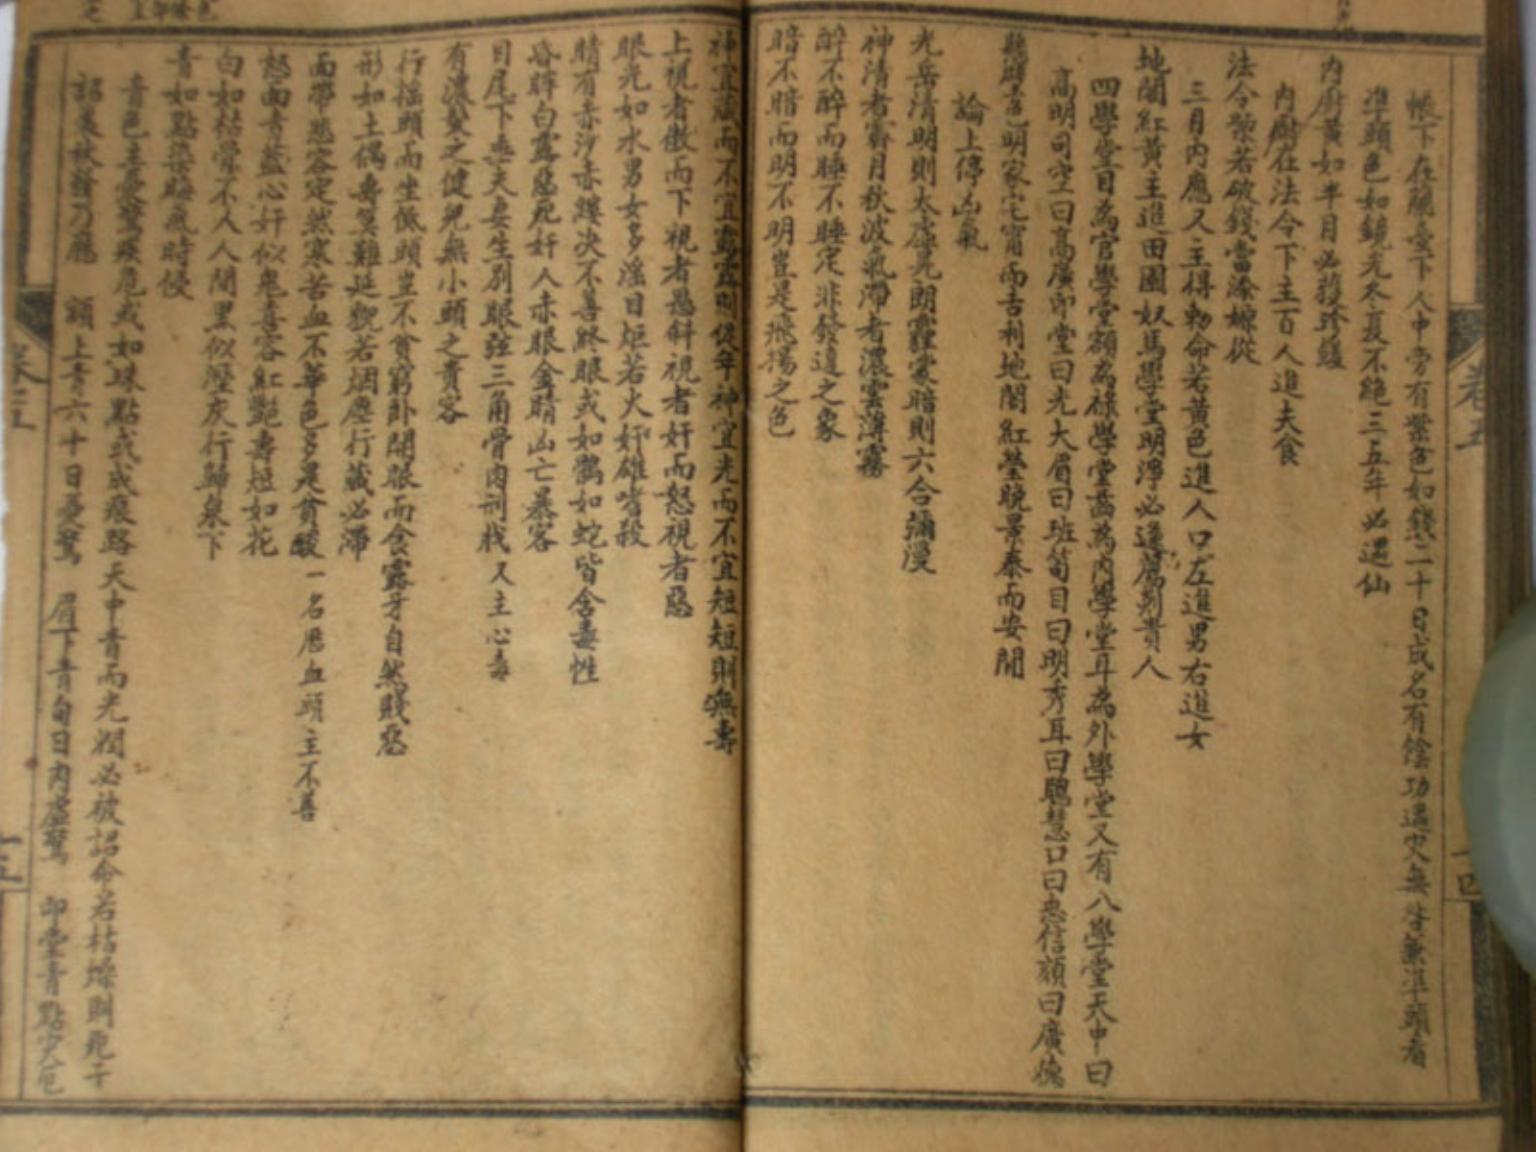 帳下在蘭臺下人中旁有紫色如錢二十日成名有陰功過灾無
準頭色如鏡光冬夏不絕三五年必遇仙
內厨黃如半月必獲珍饈
內厨在法令下主百人進夫食
法令
三月內應又主得勅命若黃色進人口左進男右進女
地閣紅黃主進田園奴馬學堂明淨必逢薦剡貴人
四學堂目為官學堂額為祿學堂齒為內學堂耳為外學堂又有八學堂天中曰
高明司空曰高廣印堂曰光大眉曰班筍目曰明秀耳曰聰慧口曰忠信頦曰廣德
明家宅甯而吉利地閣紅瑩晚景泰而安閒
論上停凶氣
光岳清明則太虛晃朗霾霧暗則六合瀰漫
神清者霽月秋波氣滯者濃雲薄霧
醉不醉而睡不睡定非發達之象
暗不暗而明不明豈是飛揚之色
神宜藏而不宜露露則促年神宜光而不宜短短則無壽
上視者傲而下視者愚斜視者奸而怒視者惡
眼光如水男女多淫目炬若火奸雄嗜殺
睛有赤沙赤縷决不善終眼或如鶴如蛇皆含毒性
昏眸白露惡死奸人赤眼金睛凶亡暴客
目尾下垂夫妻生別眼弦三角骨肉刑戕又主心毒
有濃髮之健兒無小頭之貴客
行搖頭而坐低頭豈不貧窮卧開眼而食露牙自然賤惡
形如土偶壽筭難延貌若烟塵行藏必滯
面帶悲容定然寒苦血不華色多是貧酸一名懸血頭主不善
怒面青藍心奸似鬼喜容紅艷壽短如花
白如枯骨不久人間黑似溼灰行歸泉下
青如點染晦氣時侵
青色主憂驚疾厄或如珠點或成痕路天中青而光潤必被詔命若枯燥則死于
詔 乃應 額上青六十日憂驚 眉下青旬日內虛驚 印堂青點灾厄
卷五
十四
卷五
十五